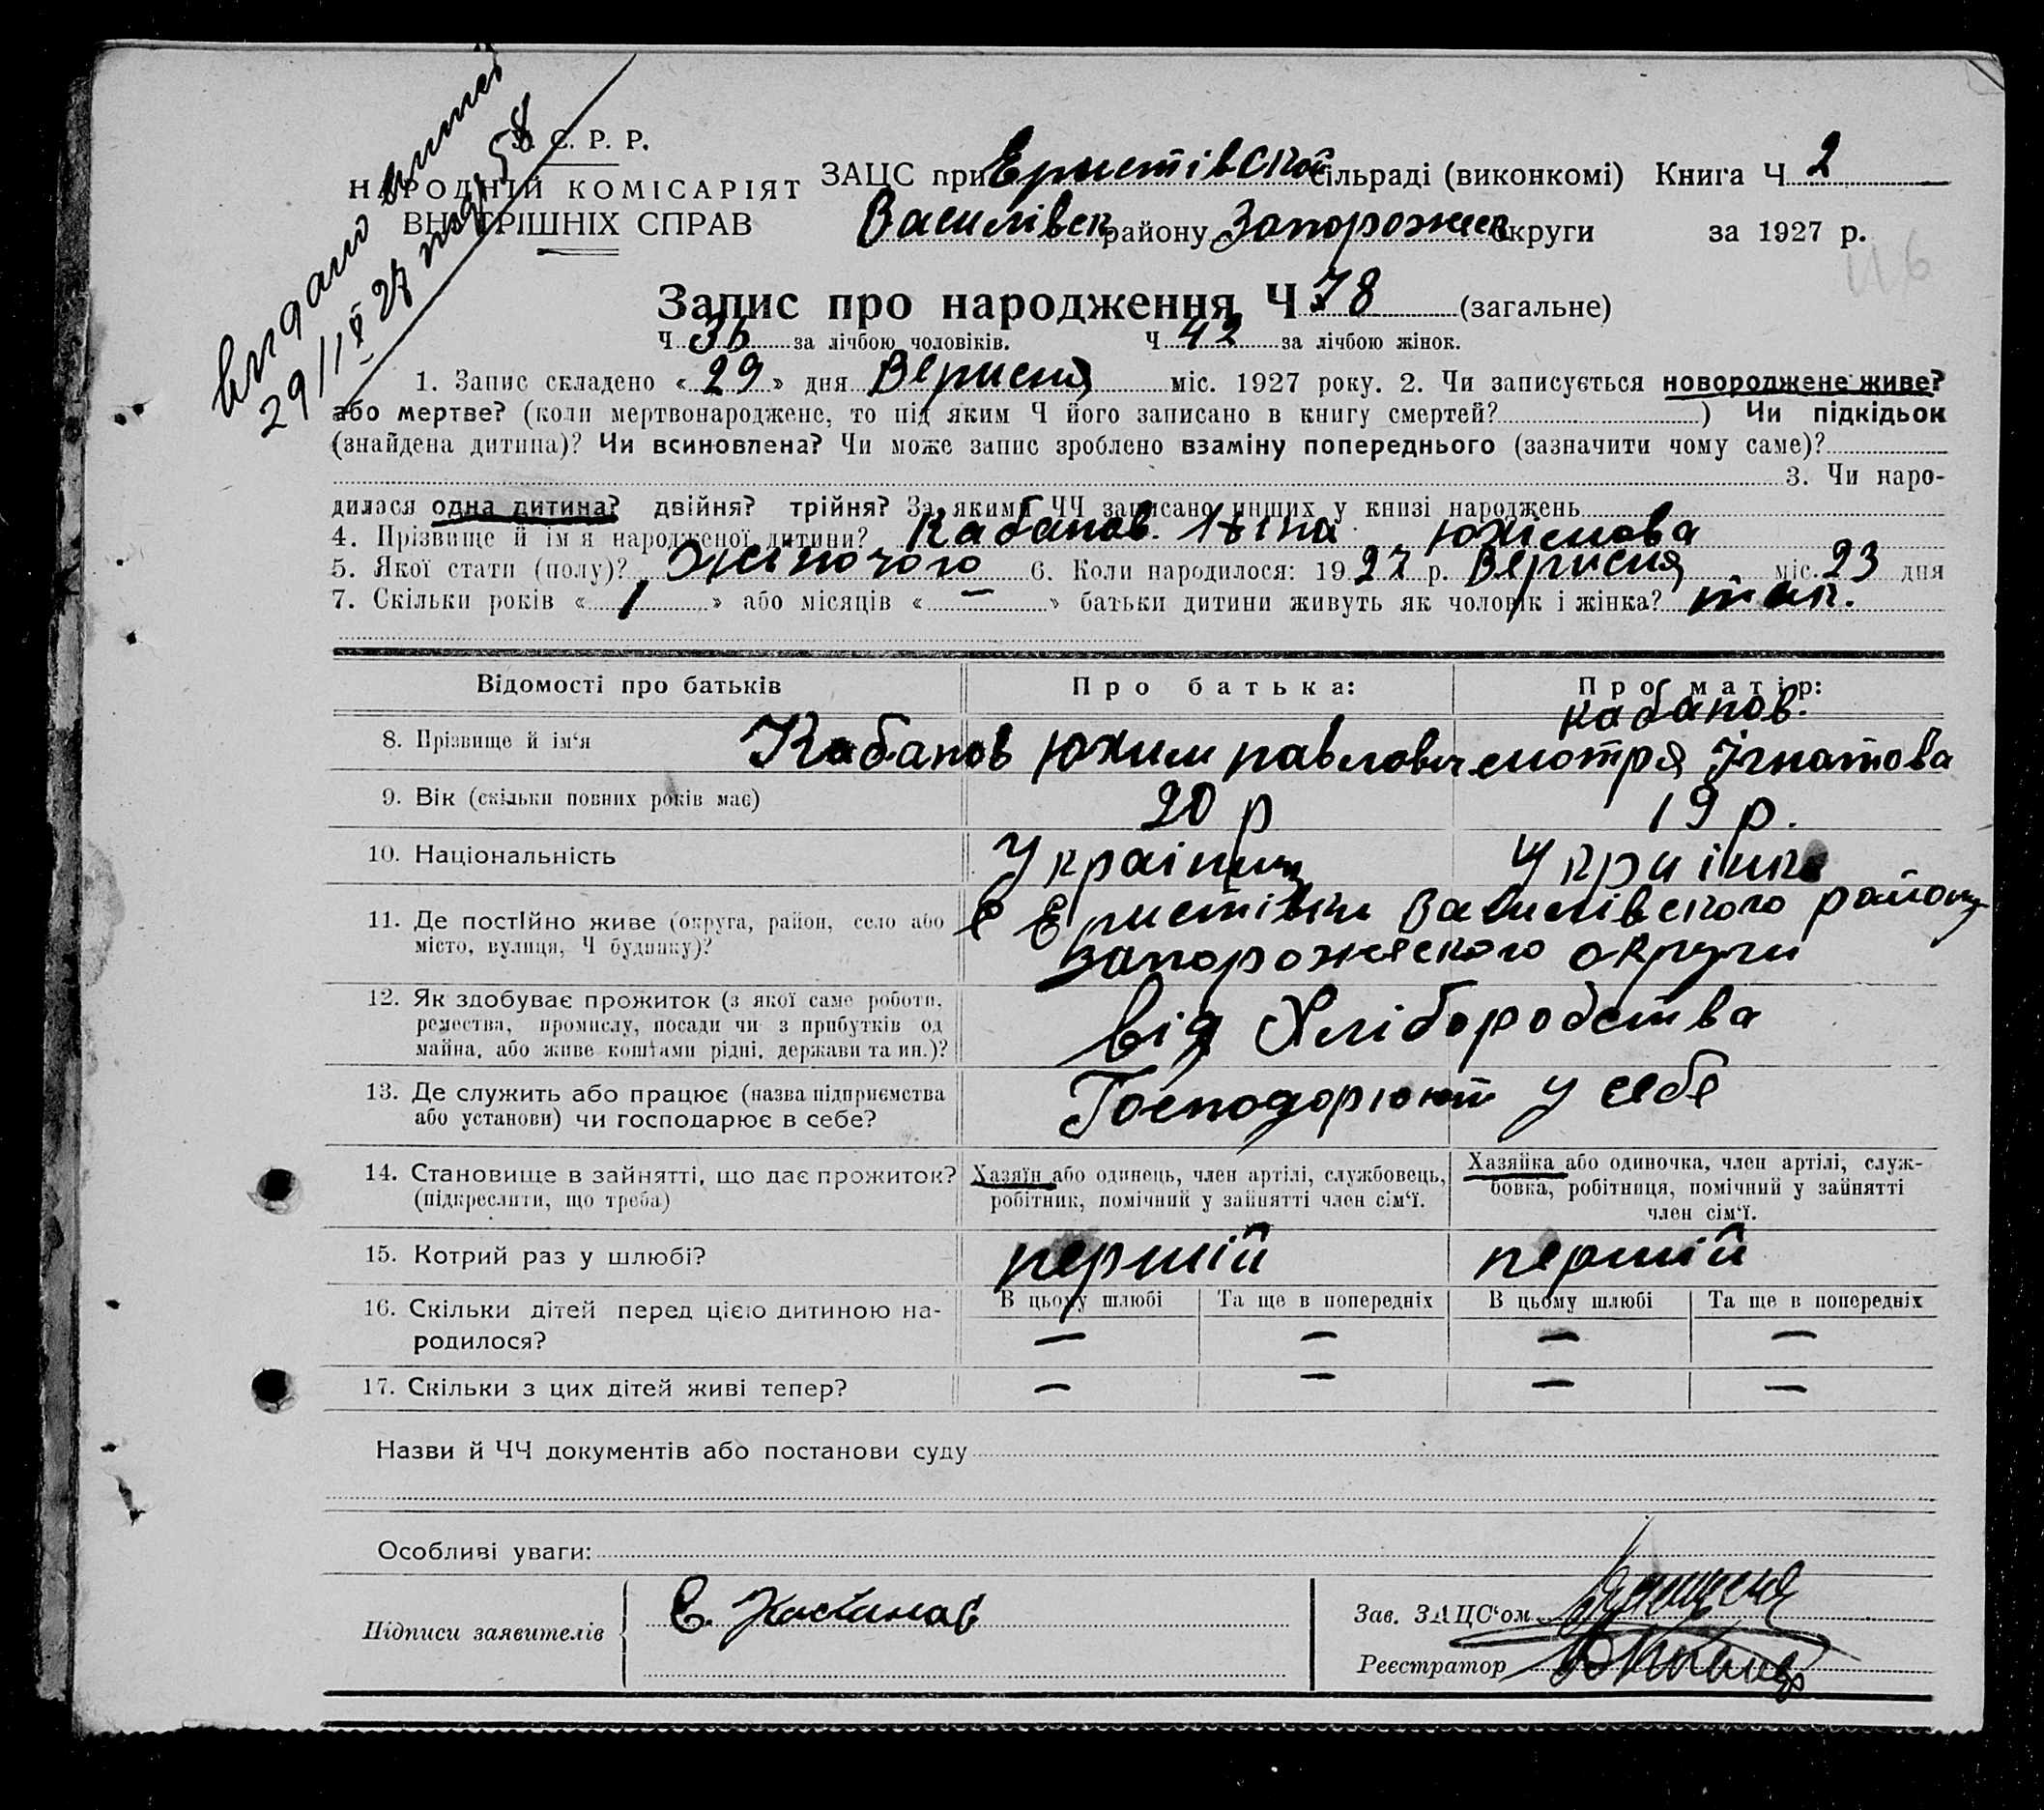 видано виписі
29/IX 27 під 58
У. С. Р. Р.
НАРОДНІЙ КОМІСАРІЯТ
ВНУТРІШНІХ СПРАВ
ЗАЦС при Еристівской сільраді (виконкомі) Книга Ч 2
Василівск району Запорожск округи за 1927 р.
116
Запис про народження Ч 78 (загальне)
Ч 36 за лічбою чоловіків. Ч 42 за лічбою жінок.
1. Запис складено « 29 » дня Верисня міс. 1927 року. 2. Чи записується новороджене живе?
або мертве? (коли мертвонароджене, то під яким Ч його записано в книгу смертей? ) Чи підкідьок
(знайдена дитина)? Чи всиновлена? Чи може запис зроблено взаміну попереднього (зазначити чому саме)?
3. Чи наро-
дилася одна дитина? двійня? трійня? За якими ЧЧ записано инших у книзі народжень
4. Прізвище й ім'я народженої дитини? Кабанов. Ніна Юхімова
5. Якої стати (полу)? Жіночого 6. Коли народилося: 1927 р. Верисня міс. 23 дня
7. Скільки років « 1 » або місяців « — » батьки дитини живуть як чоловік і жінка?
Відомості про батьків Про батька: Про матір:
Кабанов.
8. Прізвище й ім'я Кабанов Юхим павлович мотря Ігнатова
9. Вік (скільки повних років має) 20 р 19 р.
10. Національність Українец Українка
11. Де постійно живе (округа, район, село або с Еристівки Василівского району
місто, вулиця, Ч будинку)? Запорожского округи
12. Як здобуває прожиток (з якої саме роботи,
ремества, промислу, посади чи з прибутків од від Хліборобства
майна, або живе коштами рідні, держави та ин.)?
13. Де служить або працює (назва підприємства Господорюют у себе
або установи) чи господарює в себе?
14. Становище в зайнятті, що дає прожиток? Хазяїн або одинець, член артілі, службовець, Хазяйка або одиночка, член артілі, служ-
(підкреслити, що треба) робітник, помічний у зайнятті член сім'ї. бовка, робітниця, помічний у зайнятті
член сім'ї.
15. Котрий раз у шлюбі? першій першій
16. Скільки дітей перед цією дитиною на- В цьому шлюбі Та ще в попередніх В цьому шлюбі Та ще в попередніх
родилося? — — — —
17. Скільки з цих дітей живі тепер? — — — —
Назви й ЧЧ документів або постанови суду
Особливі уваги:
Підписи заявителів Е. Кабанов
Зав. ЗАЦС'ом
Реєстратор